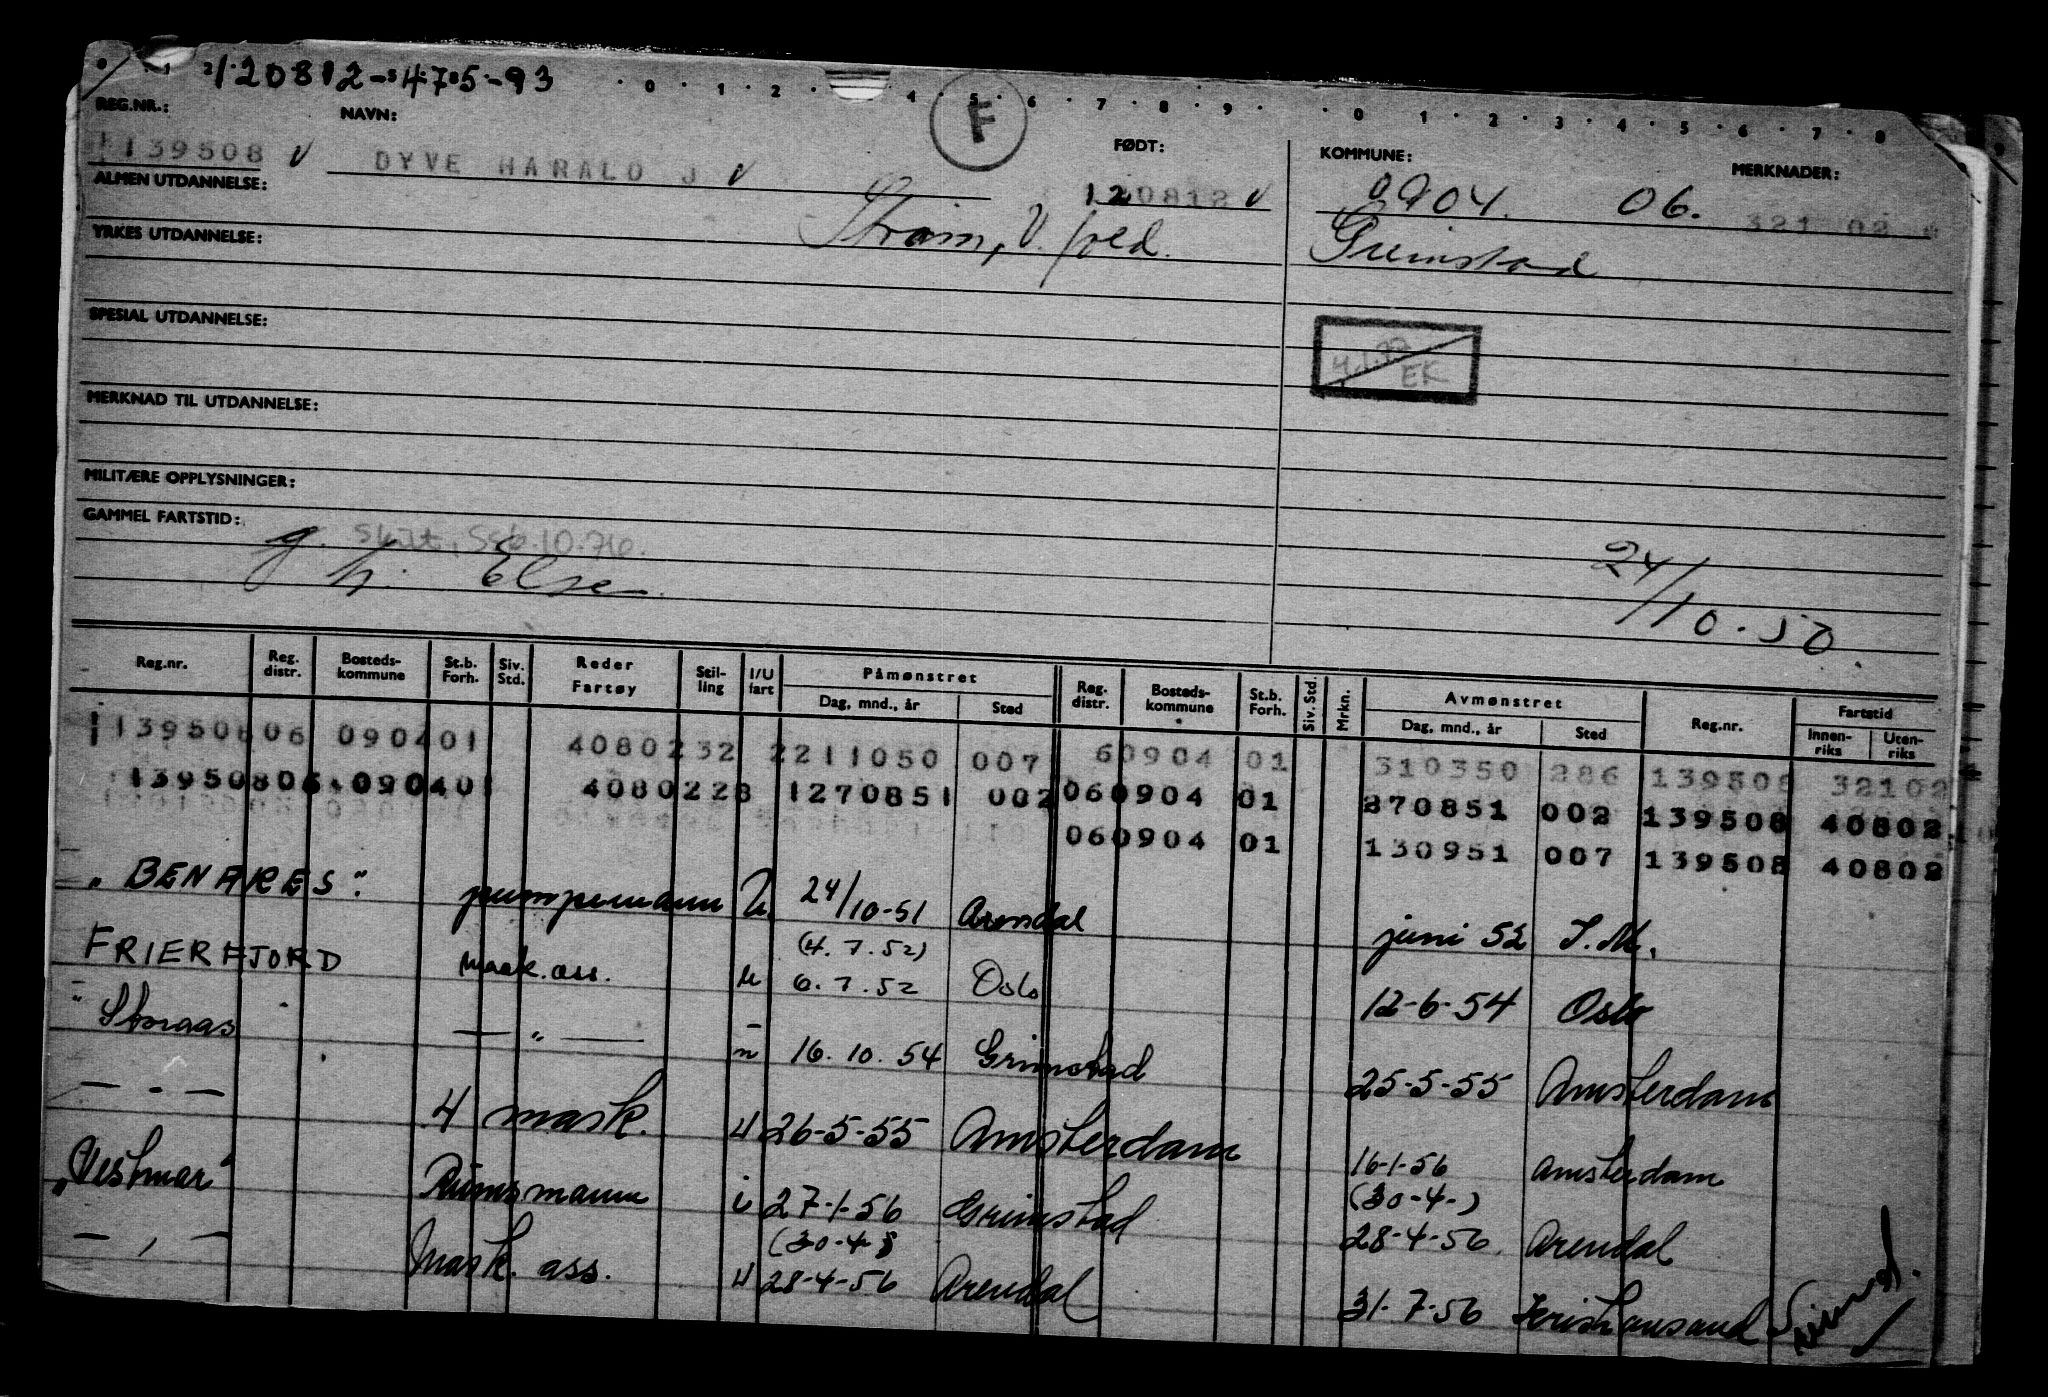 120812-475-93
F
REG.NR.: NAVN: FØDT: KOMMUNE: MERKNADER:
1139508 v DYVE HARALD J v 120812 v 0904. 06. 321 02
ALMEN UTDANNELSE:
Strøm, V. fold. Grimstad
YRKES UTDANNELSE:
SPESIAL UTDANNELSE:
EK
MERKNAD TIL UTDANNELSE:
MILITÆRE OPPLYSNINGER:
GAMMEL FARTSTID:
g. h. Else 24/10-50
Reg.nr. Reg. distr. Bosteds-kommune St.b. Forh. Siv. Std. Reder Fartøy Stil-ling I/U fart Påmønstret Dag, mnd., år Sted Reg. distr. Bosteds-kommune St.b. Forh. Siv. Std. Mrkn. Avmønstret Dag, mnd., år Sted Reg.nr. Fartstid Innen-riks Uten-riks
113950806 090401 4080232 2211050 007 60904 01 310350 286 139508 32102
13950806 090401 4080228 1270851 002 060904 01 270851 002 139508 40802
060904 01 130951 007 139508 40802
"BENARES". pumpemann U 24/10-51 Arendal juni 52 I.M.
(4.7.52)
FRIERFJORD mask.ass. u 6.7.52 Oslo 12-6-54 Oslo
" Storaas — " — u 16.10.54 Grimstad 25-5-55 Amsterdam
— " — 4 mask. u 26-5-55 Amsterdam 16-1-56 Amsterdam
(30-4-)
"Vestmar" Rumsmann i 27-1-56 Grimstad 28-4-56 Arendal
(30-4-)
— " — Mask. ass. u 28-4-56 Arendal 31-7-56 Kristiansand